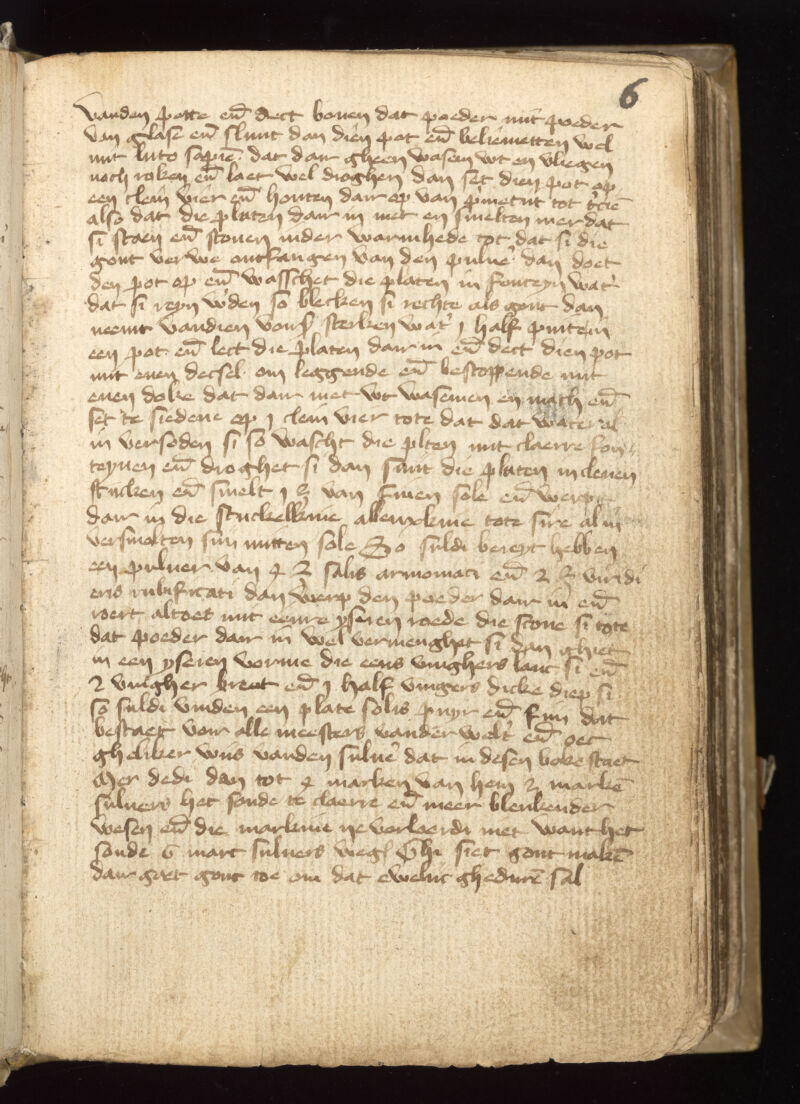 6
vanden potte en̄ dect bouen dat poeder mit poeder
van glase en̄ slunt dan dien pot en̄ beliemetten wel
mit luto sapiē dat dair gheen wasem wt en vliegen
noch roken en̄ laet wel droghen dan set dien pot op
een clein vier en̄ houten dair op van primetijt tot
also dat die platen dair in niet en smelten mer dat
si staen en̄ stouen inder warmhede tot dat si die
gout verwe ontfangen van den puluer dan doet
den pot op en̄ wasschet die platen in fonteyn wat'
dat si reyn w'den so blecken si rechte als gout dan
neemt vandien sterken wat' j half pintein
een pot en̄ lect die platen dair in en̄ dect dien pot
mit enen decsel om leggende en̄ bestoppende mit
enen doke dat dair niet wt wasemen en mach en̄
set te siedene op j clein vier tote dat dat water al
in versoden si so wascht die plten mit claerre fon
teynen en̄ droghet si dan snijt die platen in clenen
stucken en̄ smelt j ʒ van finen sole en̄ werp
dair in die stuckelkine allenxkine tote sire al in
versmolten sijn mitten sole So suldi bereyt hebben
een puluer van 4 ʒ salis armoniaci en̄ 2 ʒ viridi
eris rubificati dan werp den poeder dair in en̄
roert altoes mit eenre yseren roede die scone si tote
dat poeder dair in wel vermenghet si dan ghiet
in een yseren vorme die eens vinghers lanc si en̄
2 vingher breet en̄ j half vingers dicke diep si
so suldi vinden een plate solis puyr en̄ fijn dat
bestaet voir alle meesters vander welt en̄ oec
gheliker wijs vanden suluer dat in desen boke staet
Mer dedi dan tot 4 marken van hem 2 markē
suluers het soude te claerre en̄ meer blenkender
wesen en̄ die markine ne verloerdi niet want het
soude 6 marc suluers weg Ghi siet gout makē
dair gaet gout toe om dat ewelic ghedurē sal